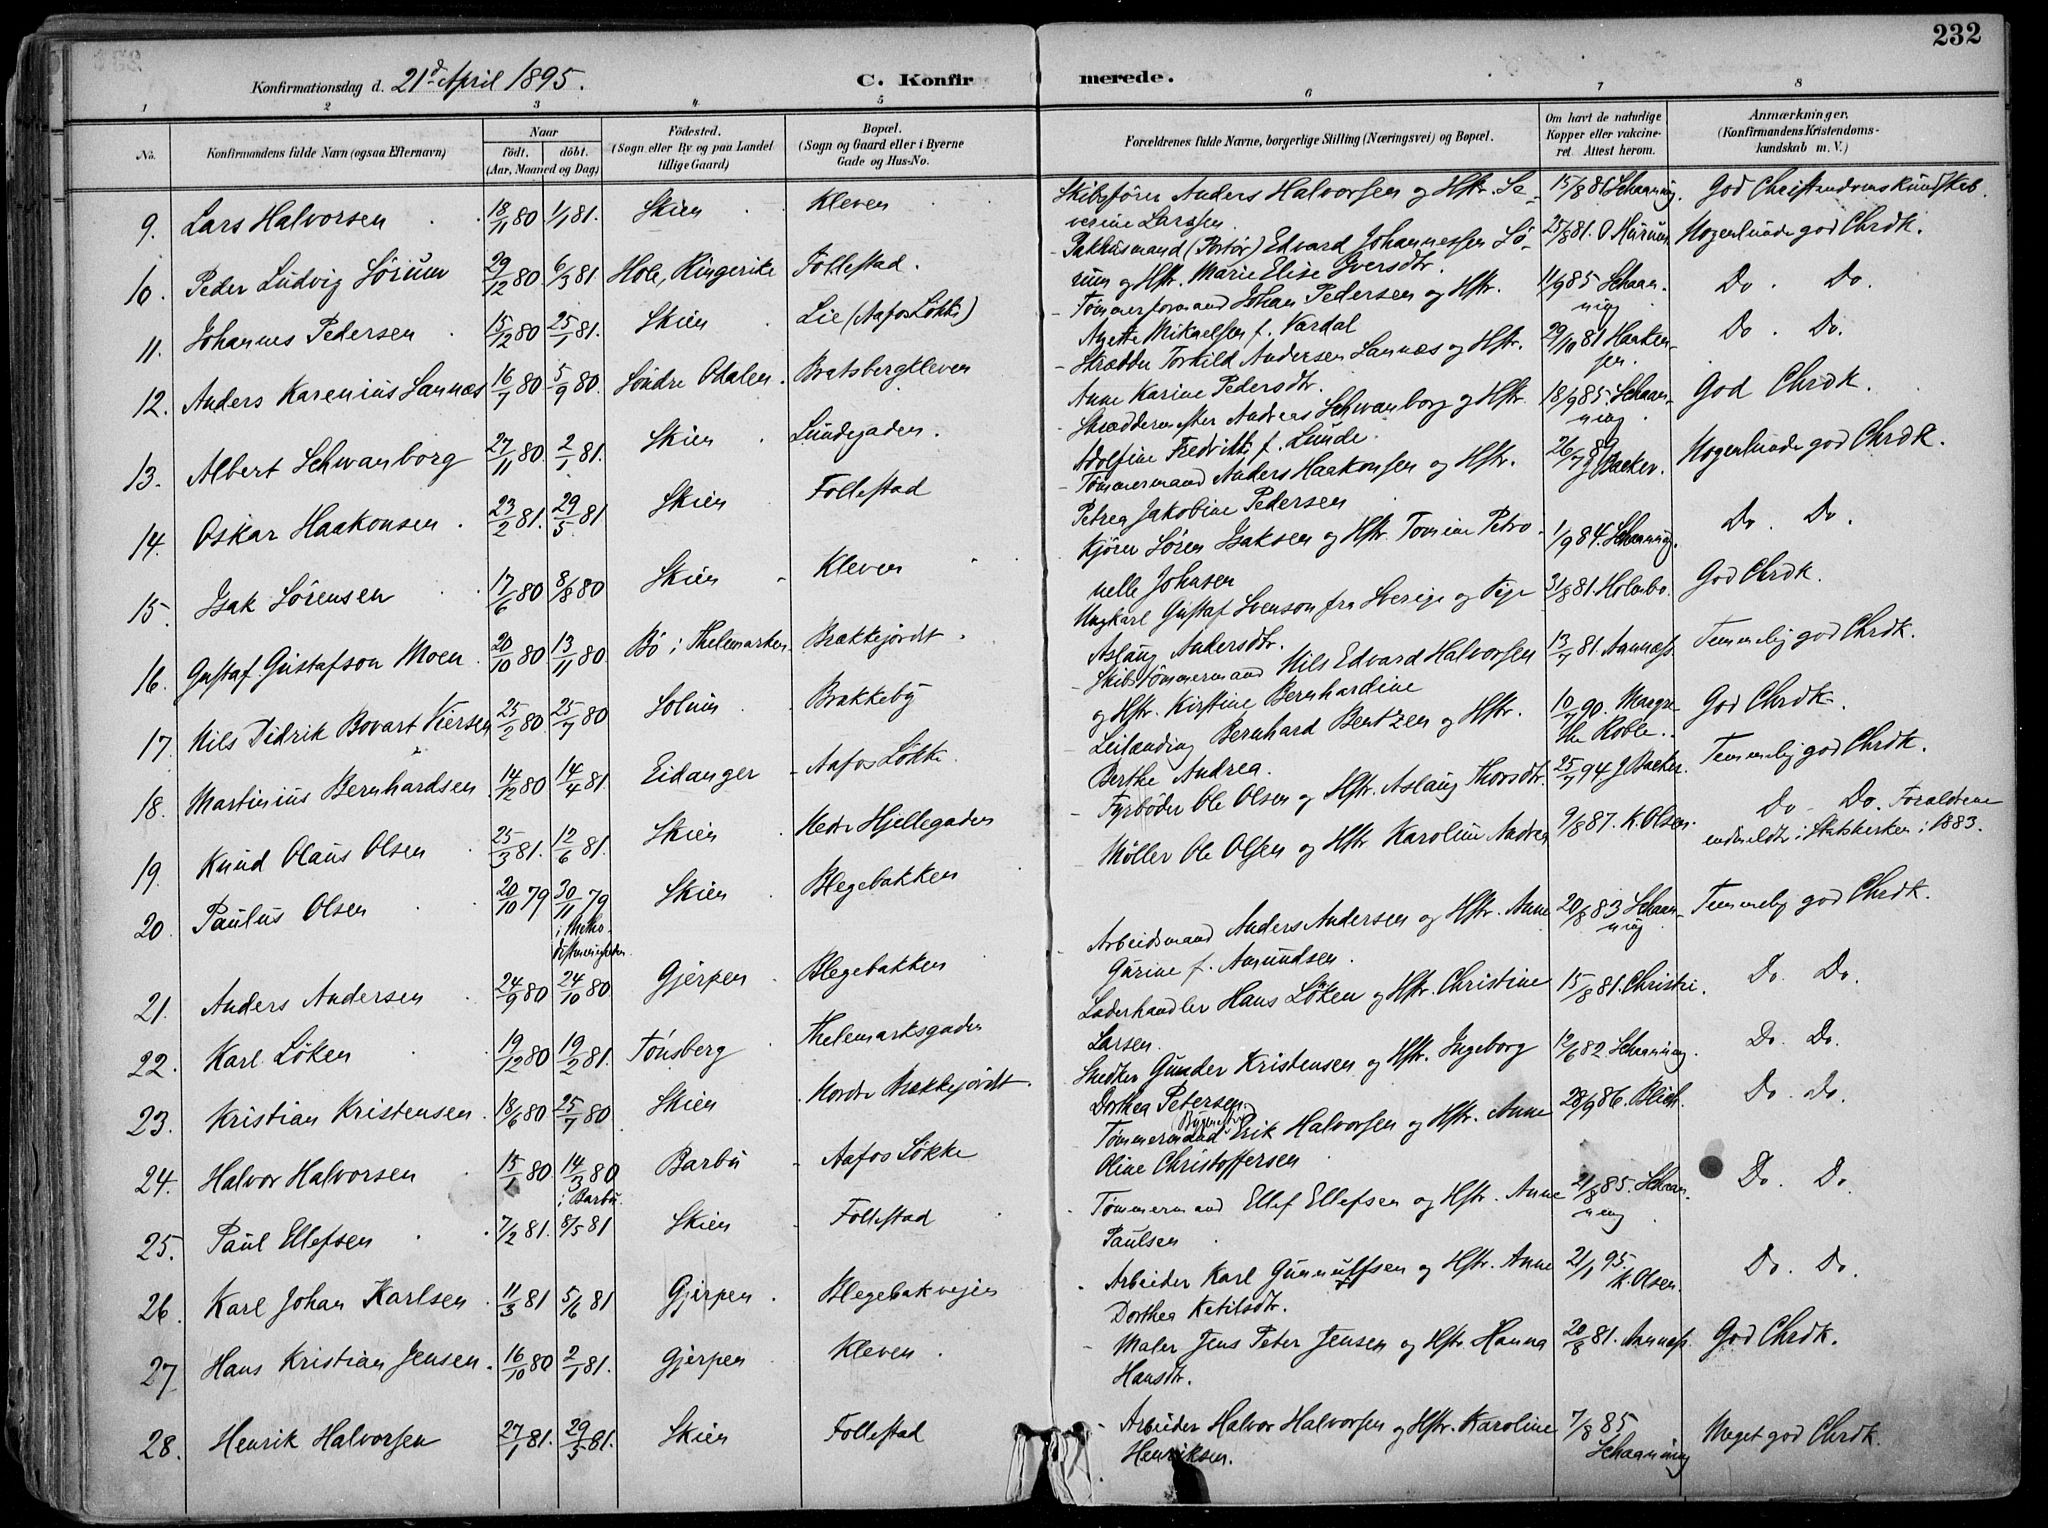 232
Konfirmationsdag d. 21d April 1895.
C. Konfirmerede.
1 2 3 4 5 6 7 8
No.
Konfirmandens fulde Navn (ogsaa Efternavn)
Naar
födt, döbt.
(Aar, Maaned og Dag)
Födested.
(Sogn eller By og paa Landet
tillige Gaard)
Bopæl.
(Sogn og Gaard eller i Byerne
Gade og Hus-No.
Forældrenes fulde Navne, borgerlige Stilling (Næringsvei) og Bopæl.
Om havt de naturlige
Kopper eller vakcine-
ret. Attest herom.
Anmærkninger.
(Konfirmandens Kristendoms-
kundskab m. V.)
9. Lars Halvorsen 18/11 80 1/1 81. Skien Kleven
Skibsförer Anders Halvorsen og Hstr. Se-
verine Larssen. 15/8 86 Schaanning. God Christendomskundskab.
10. Peder Ludvig Sörum 29/12 80 6/3 81. Hole, Ringerike Follestad.
Pakhusmand (Portör) Edvard Johannessen Sö-
rum og Hstr. Marie Elise Iversdtr. 25/8 81. O Mürum Nogenlunde god Chrdk.
11. Johannes Pedersen 15/12 80 25/1 81. Skien Lie (Aafos Løkke)
Tømmerformand Johan Pedersen og Hstr.
Anette Mikaelsen f. Vardal 11/9 85 Schaan-
ning Do. Do.
12. Anders Karenius Sannæs 16/7 80 5/9 80. Söndre Odalen. Bratsbergkleven
Skrædder Torkild Andersen Sannæs og Hstr.
Anne Karine Pedersdtr. 29/10 81 Haaken-
sen Do. Do.
13. Albert Schwanborg 27/11 80. 2/1 81. Skien Lundegaden.
Skræddermester Andreas Schwanborg og Hstr.
Adolfine Fredrikke f. Lunde. 18/9 85. Schaan-
ning God Chrdk.
14. Oskar Haakonsen 23/2 81. 29/5 81 Skien Follestad
Tømmermand Anders Haakonsen og Hstr.
Petrea Jakobine Pedersen 26/7 89 J Backer. Nogenlunde god Chrdk.
15. Isak Sörensen 17/6 80 8/8 80 Skien Kleven
Kjörer Sören Isaksen og Hstr. Tomine Petro-
nelle Johnsen 1/9 84. Schaanning. Do. Do.
16. Gustaf Gustafson Moen 20/10 80 13/11 80 Bö i Thelemarken. Brækkejordet
Ungkarl Gustaf Svenson fra Sverige og Pige
Aslaug Andersdtr. 31/8 81. Holmbo. God Chrdk.
17. Nils Didrik Bovart Viersen 25/2 80 25/7 80 Solum Brækkeby
Skibstømmermand Nils Edvard Halvorsen
og Hstr. Kirstine Bernhardine 13/7 81. Aannæss. Temmelig god Chrdk.
18. Martinius Bernhardsen 14/12 80 14/4 81. Eidanger Aafos Løkke.
Leilænding Bernhard Bentzen og Hstr.
Berthe Andrea. 10/7 90. Margre-
the Roble. God Chrdk.
19. Knud Olaus Olsen 25/3 81. 12/6 81. Skien Nedr Hjellegaden
Fyrböder Ole Olsen og Hstr. Aslaug Thorsdtr. 25/7 94 J Backer. Temmelig god Chrdk.
20. Paulus Olsen 20/10 79 30/11 79 Skien Blegebakken
i Metho-
distmenigheden.
Møller Ole Olsen og Hstr Karoline Andrea 9/8 87. K. Olsen. Do Do. Forældrene
indmeldtr. i Statskirken i 1883.
21. Anders Andersen 24/9 80 24/10 80 Gjerpen Blegebakken
Arbeidsmand Anders Andersen og Hstr. Anne
Gurine f. Amundsen. 20/8 83 Schaan-
ning Temmelig god Chrdk.
22. Karl Löken 19/12 80 19/2 81. Tönsberg Thelemarksgaden
Læderhandler Hans Löken og Hstr. Christine
Larsen. 15/8 81. Christi. Do. Do.
23. Kristian Kristensen 18/6 80 25/7 80 Skien Nordr Brækkejordet.
Snedker Gunder Kristensen og Hstr. Ingeborg
Dorthea Petersen. 12/6 82 Schaanning. Do. Do.
24. Halvor Halvorsen 15/1 80. 14/3 80 Barbu Aafos Løkke
i Barbu.
Tømmermand (Bygmester) Erik Halvorsen og Hstr. Anne
Oline Christoffersen 28/9 86. Blich. Do. Do.
25. Paul Ellefsen 7/2 81. 8/5 81 Skien Follestad
Tømmermand Ellef Ellefsen og Hstr. Anne
Paulsen 21/8 85. Schaan-
ning Do. Do.
26. Karl Johan Karlsen 11/3 81 5/6 81 Gjerpen Blegebakvejen
Arbeider Karl Gunnulfsen og Hstr. Anne
Dorthea Ketilsdtr. 21/1 95.
K. Olsen. Do. Do.
27. Hans Kristian Jensen. 16/10 80 2/1 81. Gjerpen Kleven
Maler Jens Peter Jensen og Hstr. Hanna
Hansdtr. 20/8 81. Aannæss. God Chrdk.
28. Henrik Halvorsen 27/1 81. 29/5 81. Skien Follestad
Arbeider Halvor Halvorsen og Hstr. Karoline
Henriksen. 7/8 85
Schaanning Meget god Chrdk.